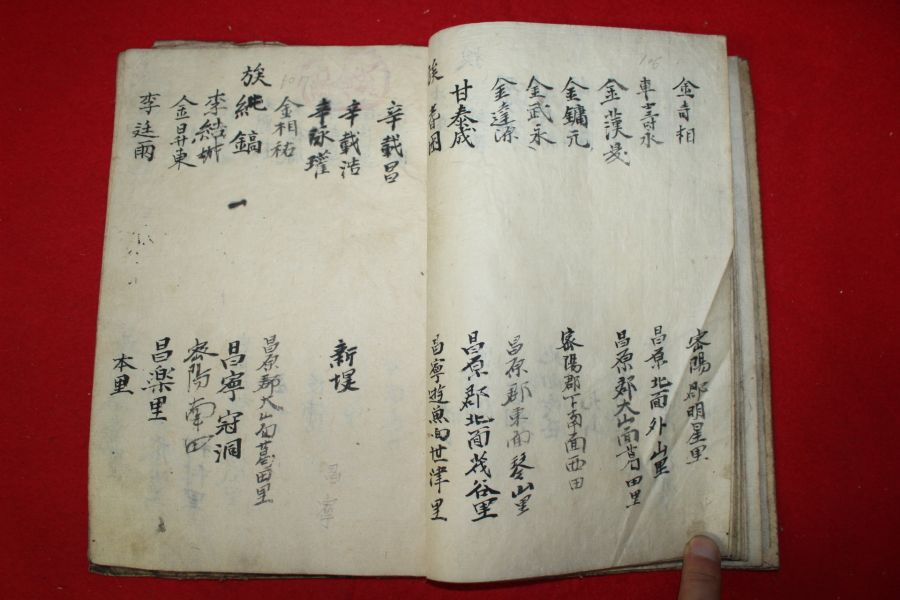 金奇相 密陽郡明星里
車壽永 昌原北面外山里
金漢 昌原郡大山面葛田里
金鏞元 密陽郡下南面西田
金武永
金達源 昌原郡東面琴山里
甘泰成 昌原郡北面茂谷里
族 春 昌寧遊魚面世津里
辛載昌
辛載浩 新堤
辛泳瓘
金相祐 昌原郡大山面葛田里
族 純鎬 昌寧冠洞
李 密陽南田
金昇東 昌樂里
李廷雨 本里